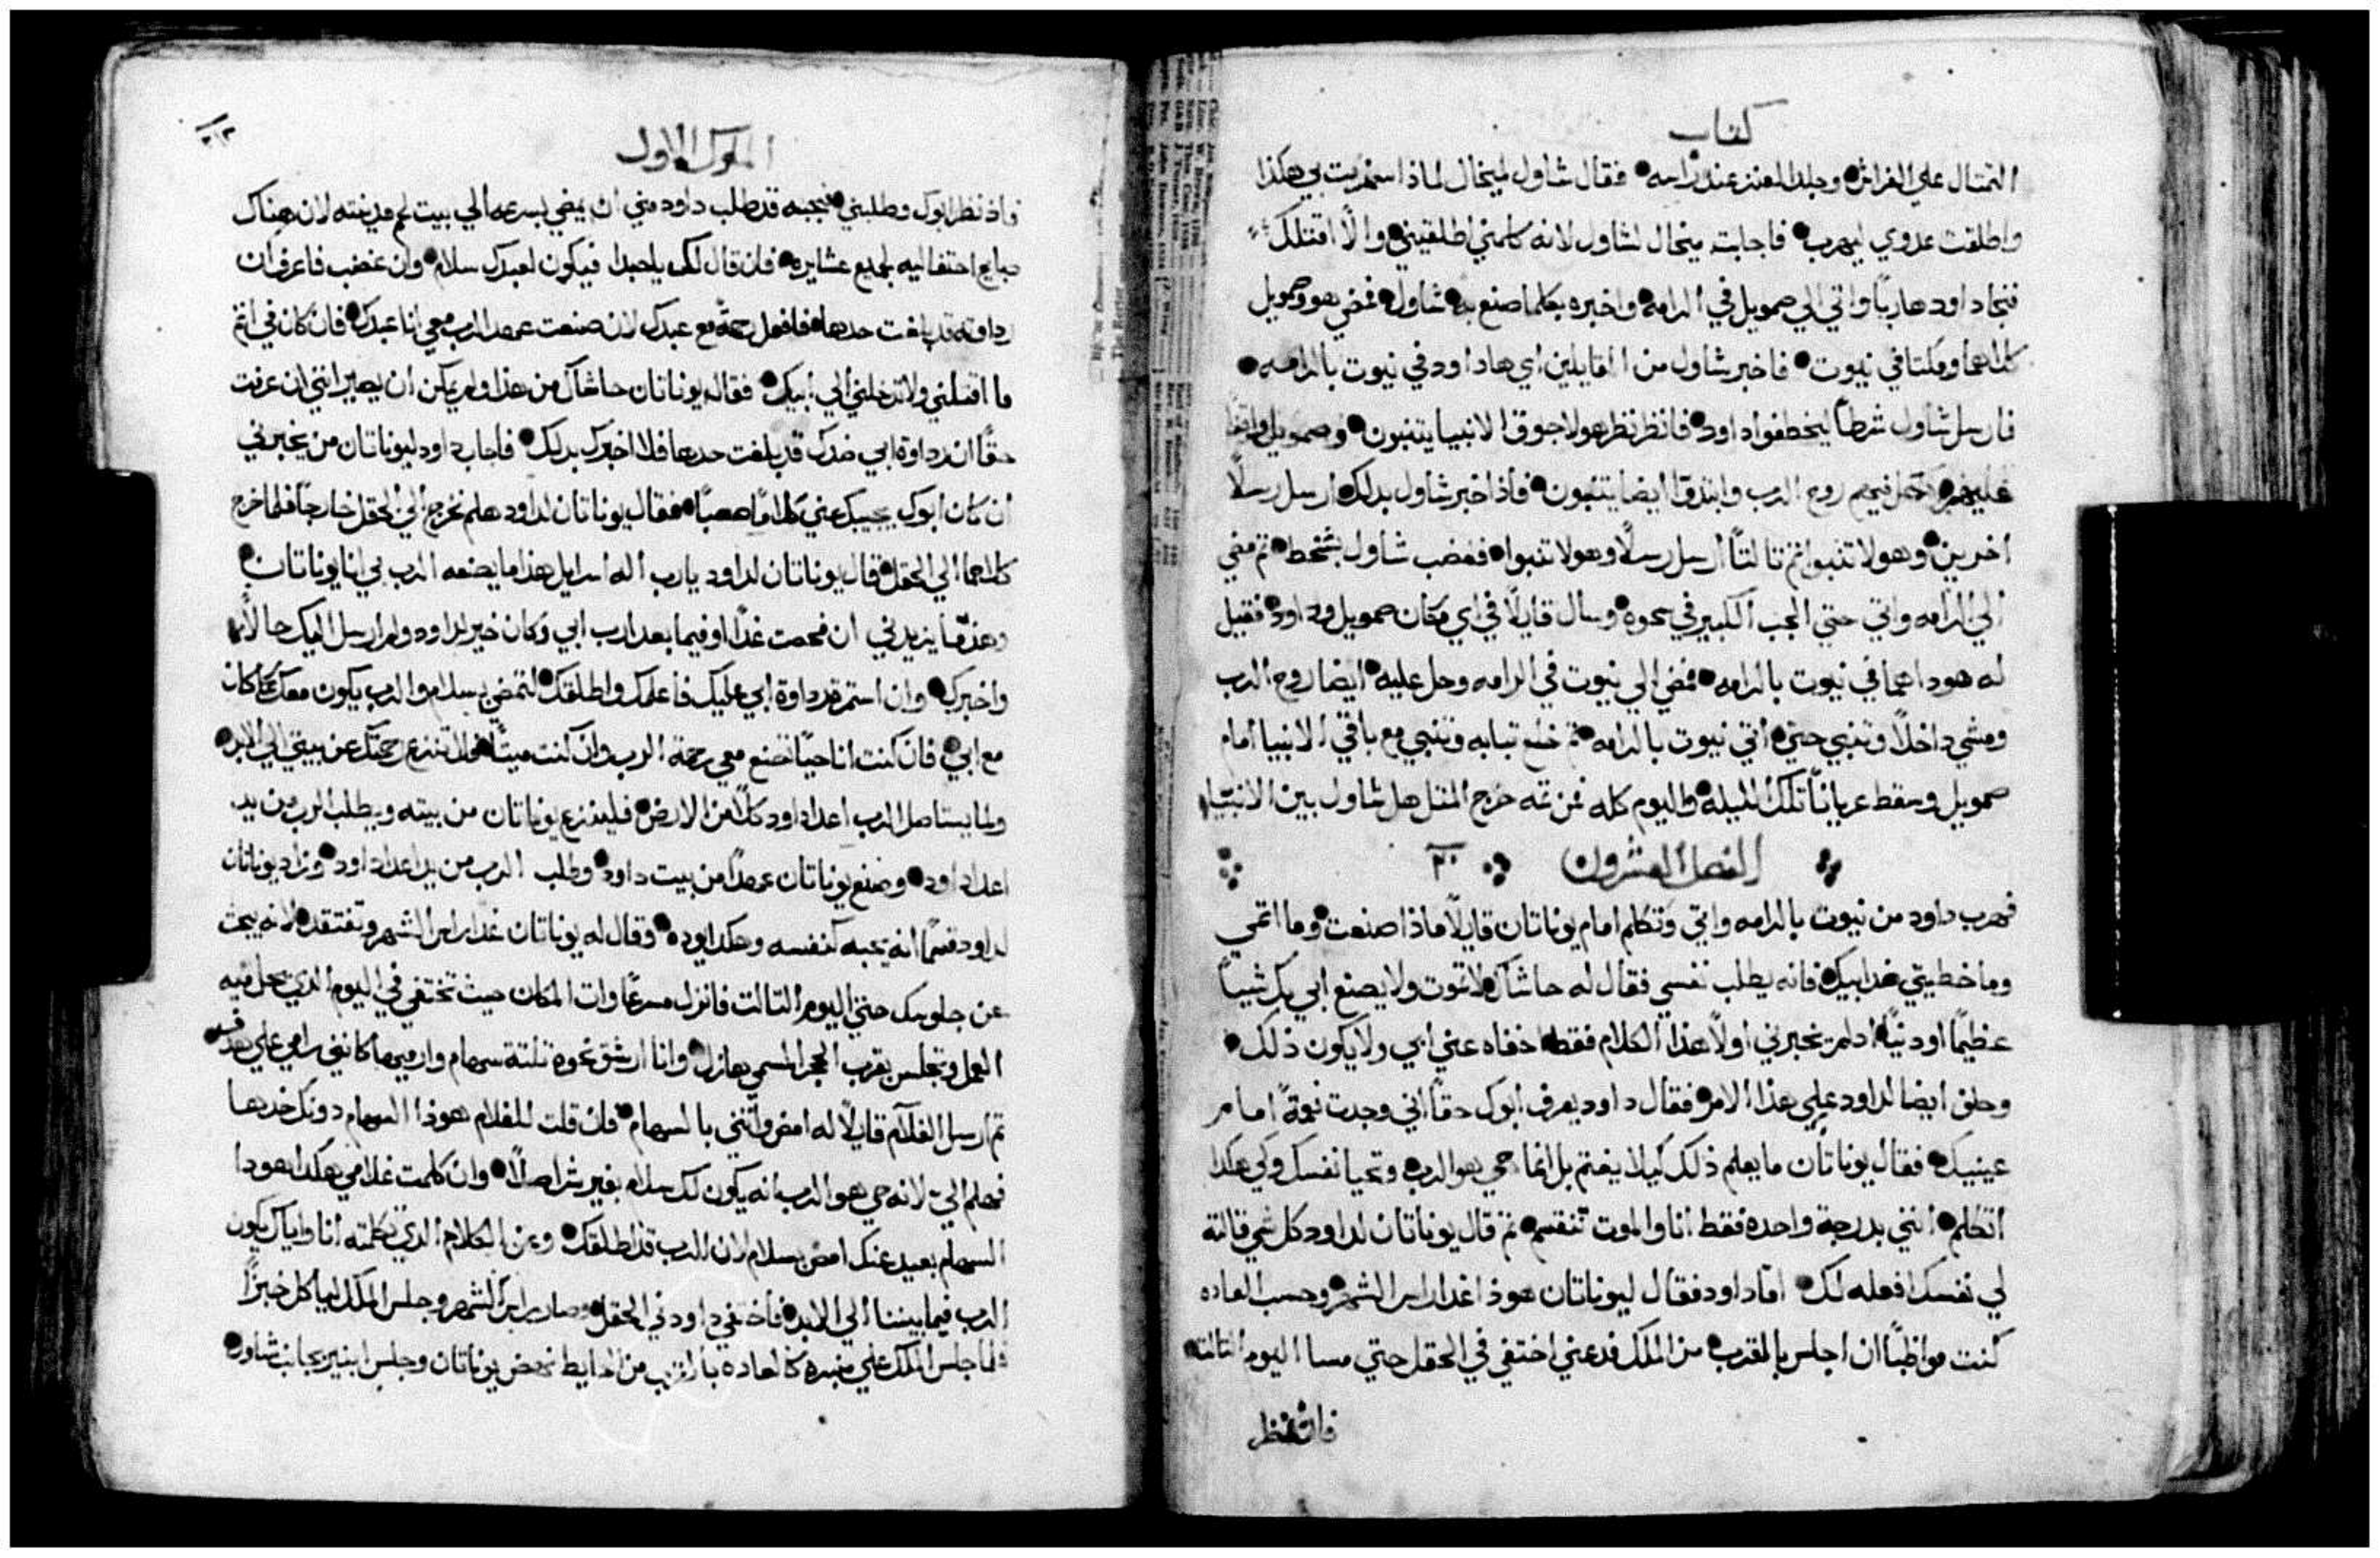 كتاب
التمثال علي الفراش وجلد المعنز عند راسه فقال شاول لميخال لماذا استهزيت بي هكذا
واطلقت عدوي ليهرب فاجابت ميخال لشاول لانه كلمني اطلقيني والا اقتلك
فنجا داود هاربًا واتي الي صمويل في الرامه واخبره بكلما صنع به شاول فمضي هو وصمويل
كلاهما ومكثا في نيوت فاخبر شاول من القايلين اي ها داود في نيوت بالرامه
فارسل شاول شرطًا ليخطفوا داود فانظر نظر هولا جوق الانبيا يتنبون وصمويل واقفًا
عليهم فحل فيهم روح الرب وابتدوا ايضا يتنبون فاذ اخبر شاول بدلك ارسل رسلًا
اخرين وهولا تنبوا ثم ثالثًا ارسل رسلًا وهولا تنبوا فغضب شاول بشخط ثم مضي
الي الرامه واتي حتي الجب الكبير في سحوه وسال قايلًا في اي مكان صمويل وداود فقيل
له هوداهما في نيوت بالرامه فمضي الي نيوت في الرامه وحل عليه ايضا روح الرب
ومشي داخلًا وتنبي حتي اتي نيوت بالرامه ثم خلع تيابه وتنبي مع باقي الانبيا امام
صمويل وسقط عريانًا تلك الليله واليوم كله فمن تمه خرج المتل هل شاول بين الانبيا
الفصل العشرون ٢٠
فهرب داود من نيوت بالرامه واتي وتكلم امام يوناتان قايلًا ماذا صنعت وما اثمي
وما خطيتي ضد ابيك فانه يطلب نفسي فقال له حاشاك لا تموت ولا يصنع ابي شيًا
عظيمًا او دنيًا ادلم يخبرني اولًا هذا الكلام فقط اخفاه عني ابي ولا يكون ذلك
وحلف ايضا لداود علي هذا الامر فقال داود يعرف ابوك حقًا اني وجدت نعمةً امام
عينيك فقال يوناتان ما يعلم ذلك كيلا يغتم بل انما حي هو الرب وتحيا نفسك
انني بدرجة واحده فقط انا والموت تنقسم ثم قال يوناتان لداود كل شي قالته
لي نفسك افعله لك اما داود فقال ليوناتان هوذا غدا راس الشهر وحسب العاده
كنت مواظبًا ان اجلس بالقرب من الملك فدعني اختفي في الحقل حتي مسا اليوم التالت
فان نظر
الملوك الاول
فاذ نظر ابوك وطلبني فجيبه قد طلب داود مني ان يمضي بسرعه الي بيت لحم مدينته لان هناك
دبايح احتفاليه لجميع عشايره فان قال لك ياحبدا فيكون لعبدك سلام وان غضب فاعرف ان
رداوته قد بلغت حدها فافعل رحمةً مع عبدك لان صنعت عهد الرب معي انا عبدك فان كان في اثم
ما اقتلني ولا تدخلني الي ابيك فقال يوناتان حاشاك من هذا ولم يمكن ان يصير انني ان عرفت
حقًا ان رداوة ابي ضدك قد بلغت حدها فلا اخبرك بدلك فاجاب داود ليوناتان من يخبرني
ان كان ابوك يجيبك عني كلامًا صعبًا فقال يوناتان لداود هلم نخرج الي الحقل خارجًا فلما خرج
كلاهما الي الحقل قال يوناتان لداود يارب اله اسرايل هذا ما يضعه الرب بي انا يوناتان
وهذا ما يزيدني ان فحصت غدًا او فيما بعد ارب ابي وكان خير لداود ولم ارسل اليك حالًا
واخبرك وان استمر رداوة ابي عليك فاعلمك واطلقك لتمضي بسلام والرب يكون معك كما كان
مع ابي فان كنت انا حيًا تصنع معي رحمة الرب وان كنت ميتًا فلا تنزع رحمتك عن بيتي الي الابد
ولما يستاصل الرب اعدا داود كلًا من الارض فلينزع يوناتان من بيته ويطلب الرب من يد
اعدا داود وصنع يوناتان عهدًا من بيت داود وطلب الرب من يد اعدا داود وزاد يوناتان
لداود قسمًا انه يحبه كنفسه وهكدا وده وقال له يوناتان غدًا راس الشهر وتفتقد لانه يبحث
عن جلوسك حتي اليوم التالت فانزل مسرعًا وات المكان حيث تختفي في اليوم الذي يحل فيه
العمل وتجلس بقرب الحجر المسمي هازل وانا ارشق نحوه تلتة سهام وارميها كانني رامي علي هدف
ثم ارسل الغلام قايلًا له امض واتني بالسهام فان قلت للغلام هوذا السهام دونك خدها
فهلم الي لانه حي هو الرب انه يكون لك سلام بغير شر اصلًا وان كلمت غلامي هكدا هودا
السهام بعيد عنك امض بسلام لان الرب قد اطلقك وعن الكلام الذي تكلمته انا واياك يكون
الرب فيما بيننا الي الابد فاختفي داود في الحقل وصار راس الشهر وجلس الملك لياكل خبزًا
فلما جلس الملك علي منبره كالعاده بالقرب من الحايط نهض يوناتان وجلس ابنير بجانب شاول